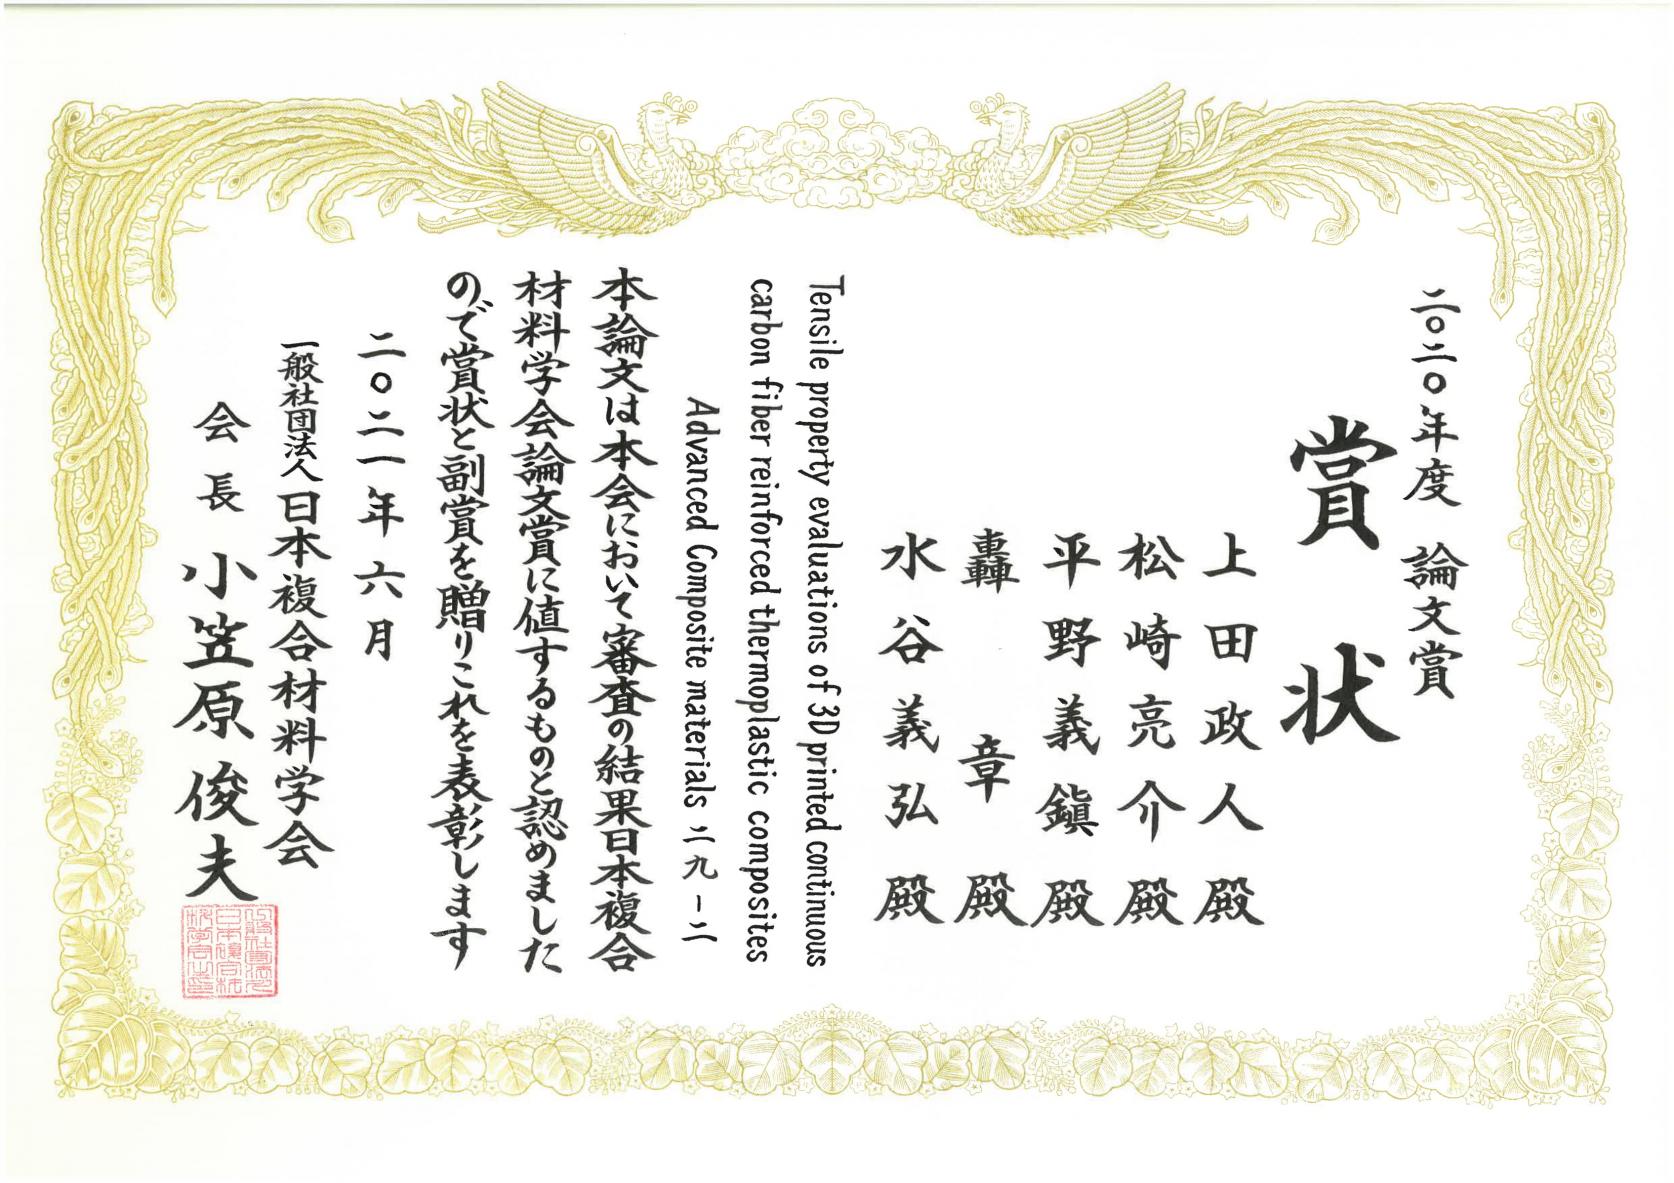 二〇二〇年度 論文賞
賞状
上田政人 殿
松崎亮介 殿
平野義鎭 殿
轟章 殿
水谷義弘 殿
Tensile property evaluations of 3D printed continuous
carbon fiber reinforced thermoplastic composites
Advanced Composite materials 二九-二
本論文は本会において審査の結果日本複合
材料学会論文賞に値するものと認めました
ので賞状と副賞を贈りこれを表彰します
二〇二一年六月
一般社団法人日本複合材料学会
会長 小笠原俊夫